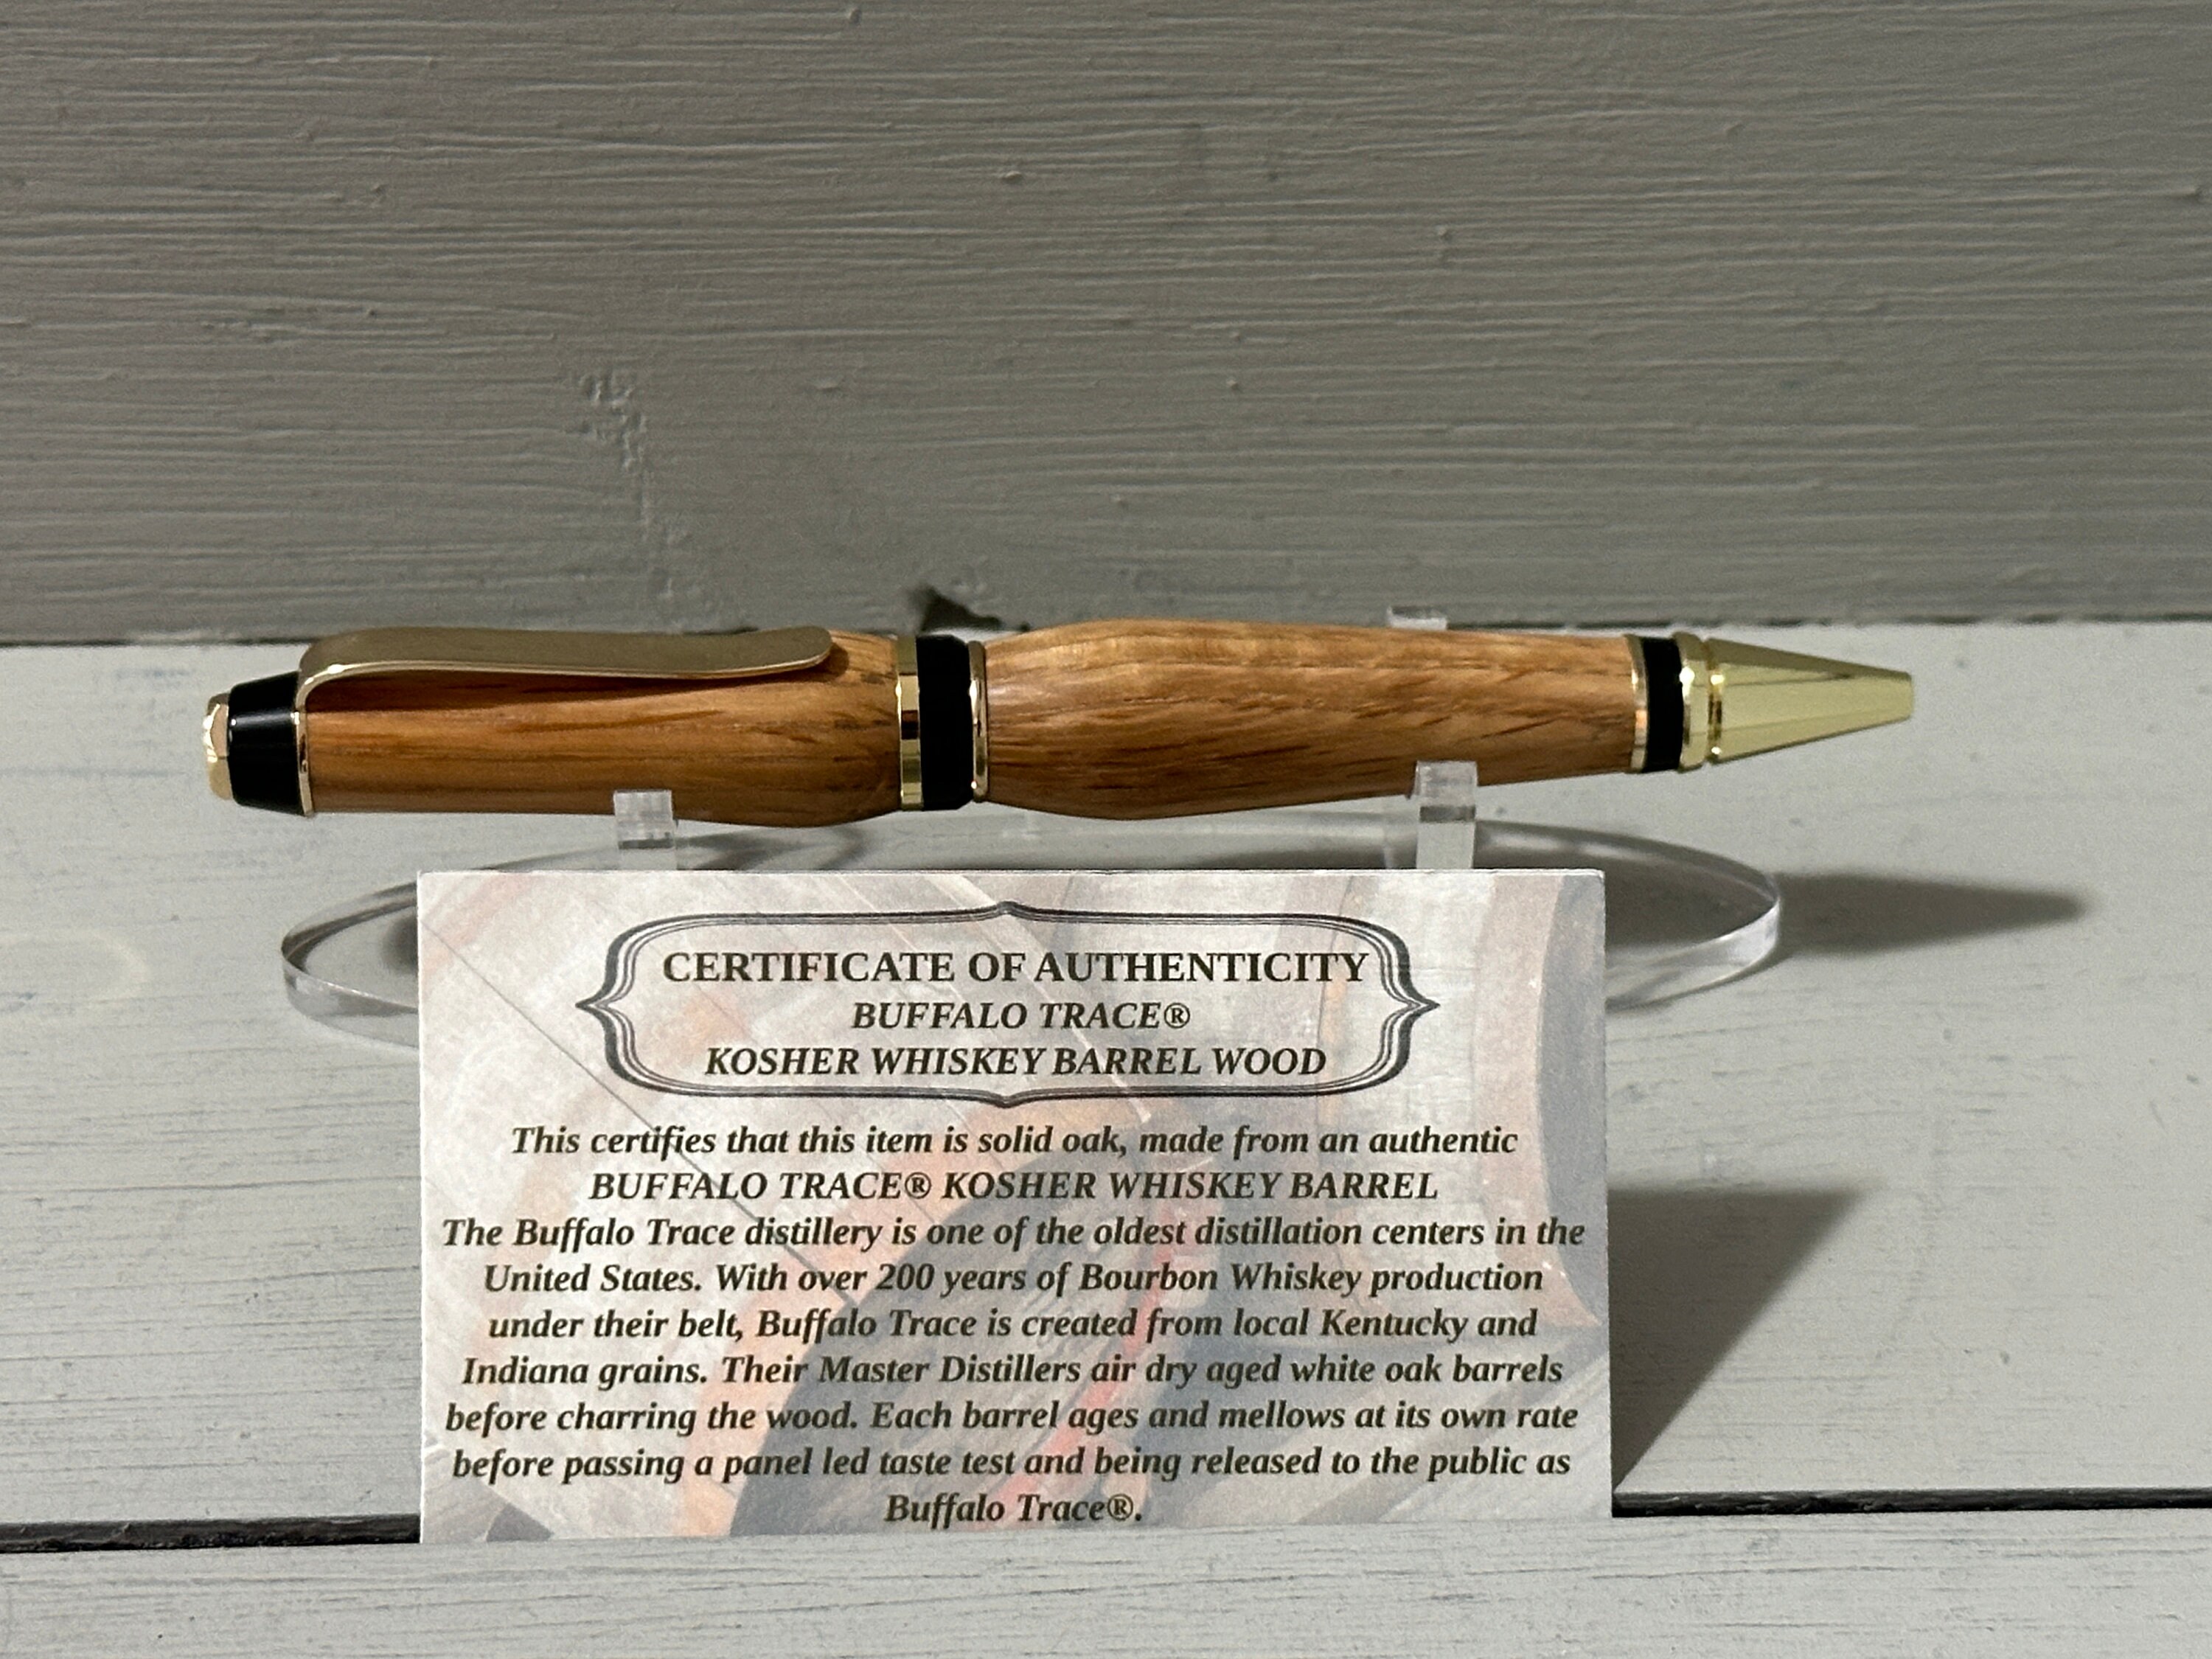 CERTIFICATE OF AUTHENTICITY
BUFFALO TRACE®
KOSHER WHISKEY BARREL WOOD
This certifies that this item is solid oak, made from an authentic
BUFFALO TRACE® KOSHER WHISKEY BARREL
The Buffalo Trace distillery is one of the oldest distillation centers in the
United States. With over 200 years of Bourbon Whiskey production
under their belt, Buffalo Trace is created from local Kentucky and
Indiana grains. Their Master Distillers air dry aged white oak barrels
before charring the wood. Each barrel ages and mellows at its own rate
before passing a panel led taste test and being released to the public as
Buffalo Trace®.